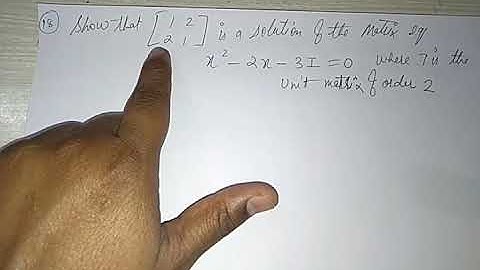 18 Show that [1 2 2 1] is a solution of the Matrix eq
x² - 2x - 3I = 0 where I is the
unit matrix of order 2